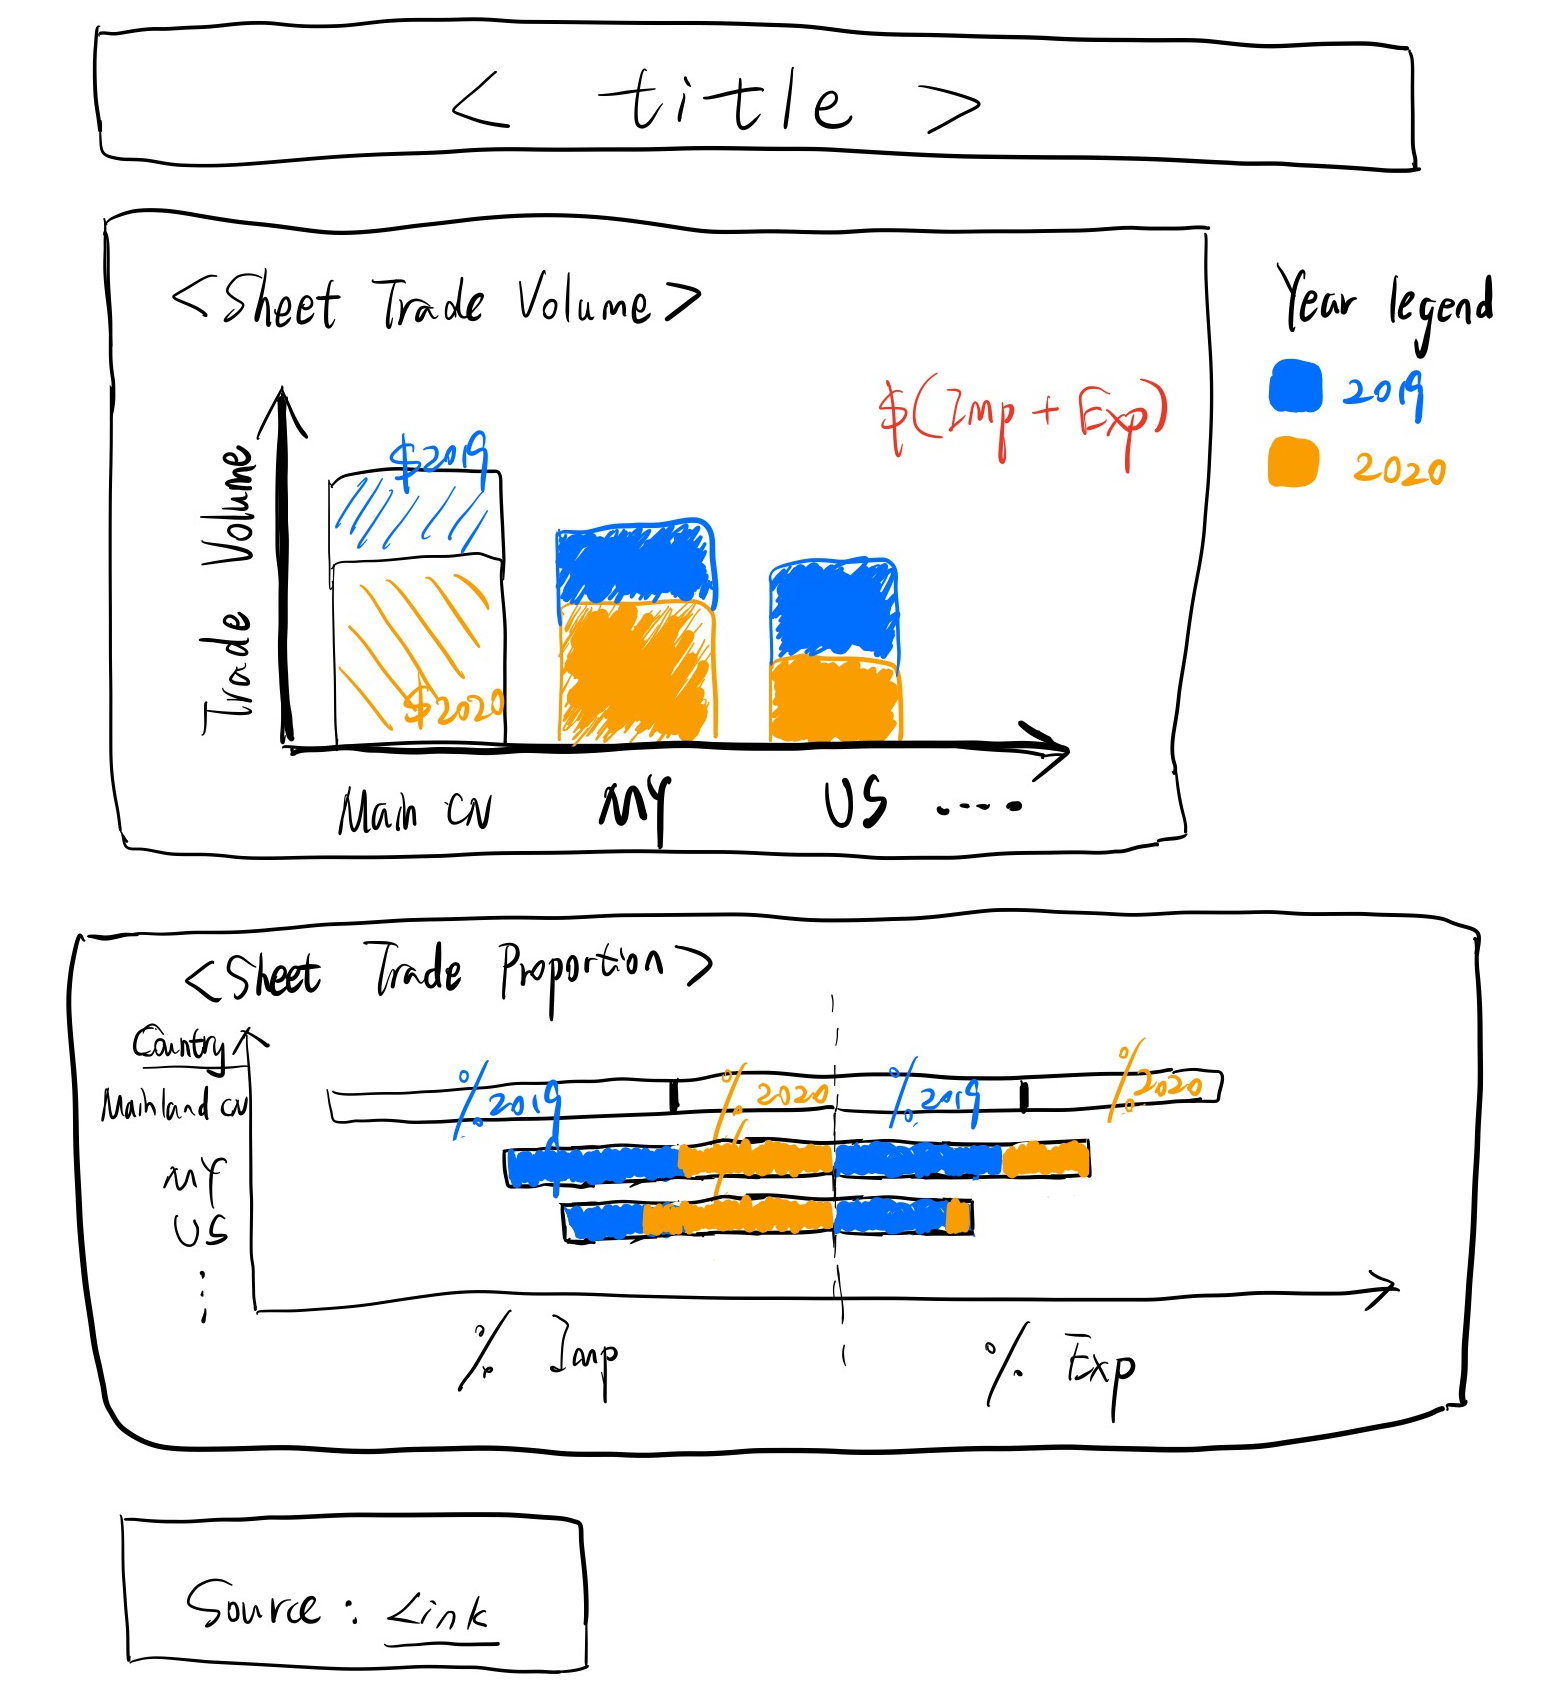 < title >
<Sheet Trade Volume>
Year legend
2019
2020
$(Imp + Exp)
Trade Volume
$2019
$2020
Main CN MY US ....
<Sheet Trade Proportion>
Country
Mainland CN
% 2019 % 2020 % 2019 % 2020
MY
US
⋮
% Imp % Exp
Source : Link